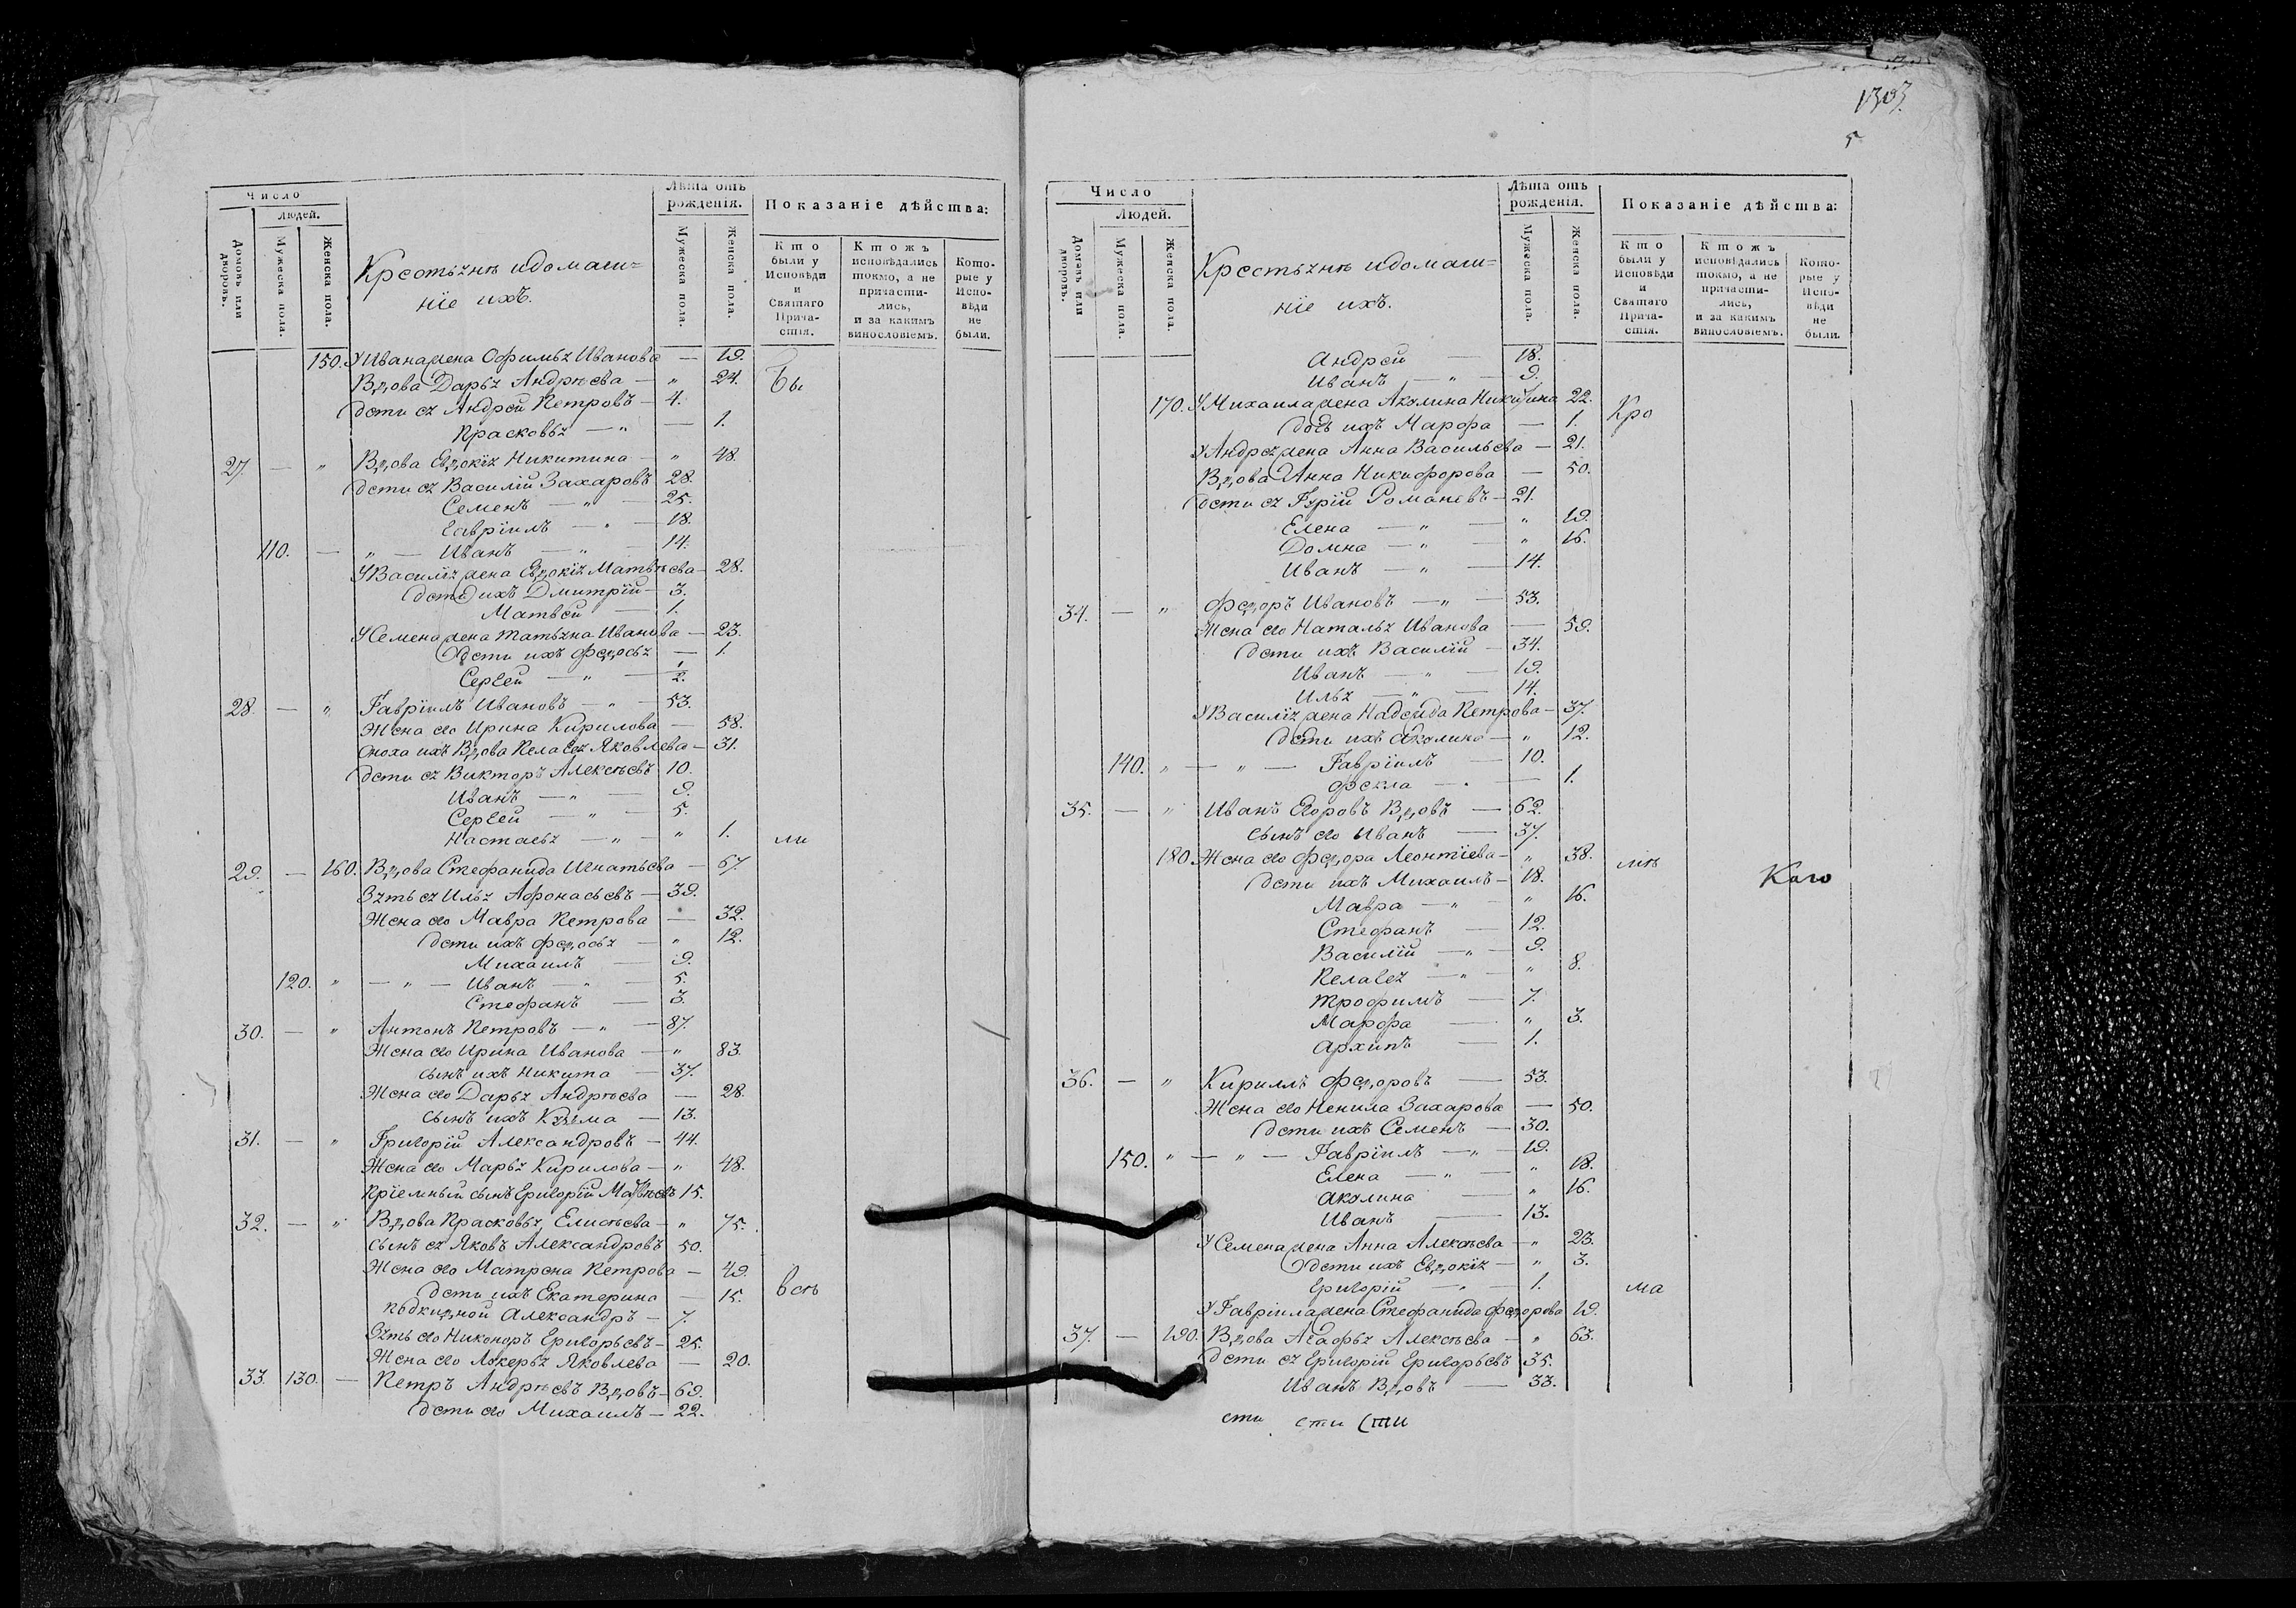 Число
Людей.
Домовъ или дворовъ.
Мужеска пола.
Женска пола.
Крестьянъ и домаш=
ніе ихъ.
Лѣта отъ рожденія.
Мужеска пола.
Женска пола.
Показаніе дѣйства:
Кто были у Исповѣди и Святаго Прича-стія.
Ктожъ исповѣдались токмо, а не причасти-лись, и за какимъ винословіемъ.
Кото-рые у Испо-вѣди не были.
150. У Ивана жена Офимья Иванова — 19.
Вдова Дарья Андрѣева — „ 24. Бы
дети ея Андрей Петровъ — 4.
Прасковья — „ — 1.
27. — „ Вдова Евдокія Никитина — „ 48.
дети ея Василій Захаровъ 28.
Семенъ — „ — 25.
Гавріилъ — „ — 18.
110. — „ — Иванъ — „ — 14.
У Василія жена Евдокія Матвѣева — 28.
дети ихъ Дмитрій — 3.
Матвей — 1.
У Семена жена Татьяна Иванова — 23.
дети ихъ Федосья — 1.
Сергей — „ — 1/2.
28. — „ Гавріилъ Ивановъ — „ — 53.
Жена его Ирина Кирилова — 58.
Сноха ихъ Вдова Пелагея Яковлева — 31.
дети ея Викторъ Алексѣевъ 10.
Иванъ — „ — 9.
Сергей — „ — 5.
Настасья — „ — „ 1. ли
29. — 160. Вдова Стефанида Игнатьева — 67.
Зять ея Илья Афонасьевъ — 39.
Жена его Мавра Петрова — 32.
дети ихъ Федосья — „ 12.
Михаилъ — 9.
120. „ — „ — Иванъ — „ — 5.
Стефанъ — 3.
30. — „ Антонъ Петровъ — „ — 87.
Жена его Ирина Иванова — „ 83.
сынъ ихъ Никита — 37.
Жена его Дарья Андрѣева — 28.
сынъ ихъ Кузма — 13.
31. — „ Григорій Александровъ — 44.
Жена его Марья Кирилова — „ 48.
Пріемный сынъ Григорій Матвѣевъ 15.
32. — „ Вдова Прасковья Елисѣева — „ 75.
сынъ ея Яковъ Александровъ 50.
Жена его Матрена Петрова — 49.
дети ихъ Екатерина — 15. всѣ
подкидной Александръ — 7.
Зять его Никоноръ Григорьевъ — 25.
Жена его Лукерья Яковлева — 20.
33. 130. — Петръ Андрѣевъ Вдовъ — 69.
дети его Михаилъ — 22.
1303.
5
Число
Людей.
Домовъ или дворовъ.
Мужеска пола.
Женска пола.
Крестьянъ и домаш=
ніе ихъ.
Лѣта отъ рожденія.
Мужеска пола.
Женска пола.
Показаніе дѣйства:
Кто были у Исповѣди и Святаго Прича-стія.
Ктожъ исповѣдались токмо, а не причасти-лись, и за какимъ винословіемъ.
Кото-рые у Испо-вѣди не были.
Андрей — 18.
Иванъ — „ — 9.
170. У Михаила жена Акулина Никитина 22. Кро
дочь ихъ Марфа — 1.
У Андрея жена Анна Васильева — 21.
Вдова Анна Никифорова — 50.
дети ея Гурій Романовъ — 21.
Елена — „ — „ 19.
Домна — „ — „ 16.
Иванъ — „ — 14.
34. — „ Федоръ Ивановъ — „ — 53.
Жена его Наталья Иванова — 59.
дети ихъ Василій — 34.
Иванъ — „ — 19.
Илья — „ — 14.
У Василія жена Надежда Петрова — 37.
дети ихъ Акулина — „ 12.
140. „ — „ — Гавріилъ — 10.
Фекла — „ — 1.
35. — „ Иванъ Егоровъ Вдовъ — 62.
сынъ его Иванъ — 37.
180. Жена его Федора Леонтіева — „ 38. мѣ
дети ихъ Михаилъ — 18. Каго
Мавра — „ — „ 16.
Стефанъ — 12.
Василій — „ — 9.
Пелагея — „ — „ 8.
Трофимъ — 7.
Марфа — „ 3.
Архипъ — 1.
36. — „ Кирилъ Федоровъ — 53.
Жена его Ненила Захарова — 50.
дети ихъ Семенъ — 30.
150. „ — „ — Гавріилъ — „ — 19.
Елена — „ — „ 18.
Акулина — „ 16.
Иванъ — 13.
У Семена жена Анна Алексѣева — „ 23.
дети ихъ Евдокія — „ 3.
Григорій — „ — 1. ма
У Гавріила жена Стефанида Федорова 19.
37. — 190. Вдова Агафья Алексѣева — „ 63.
дети ея Григорій Григорьевъ 35.
Иванъ Вдовъ — 33.
сти сти сти